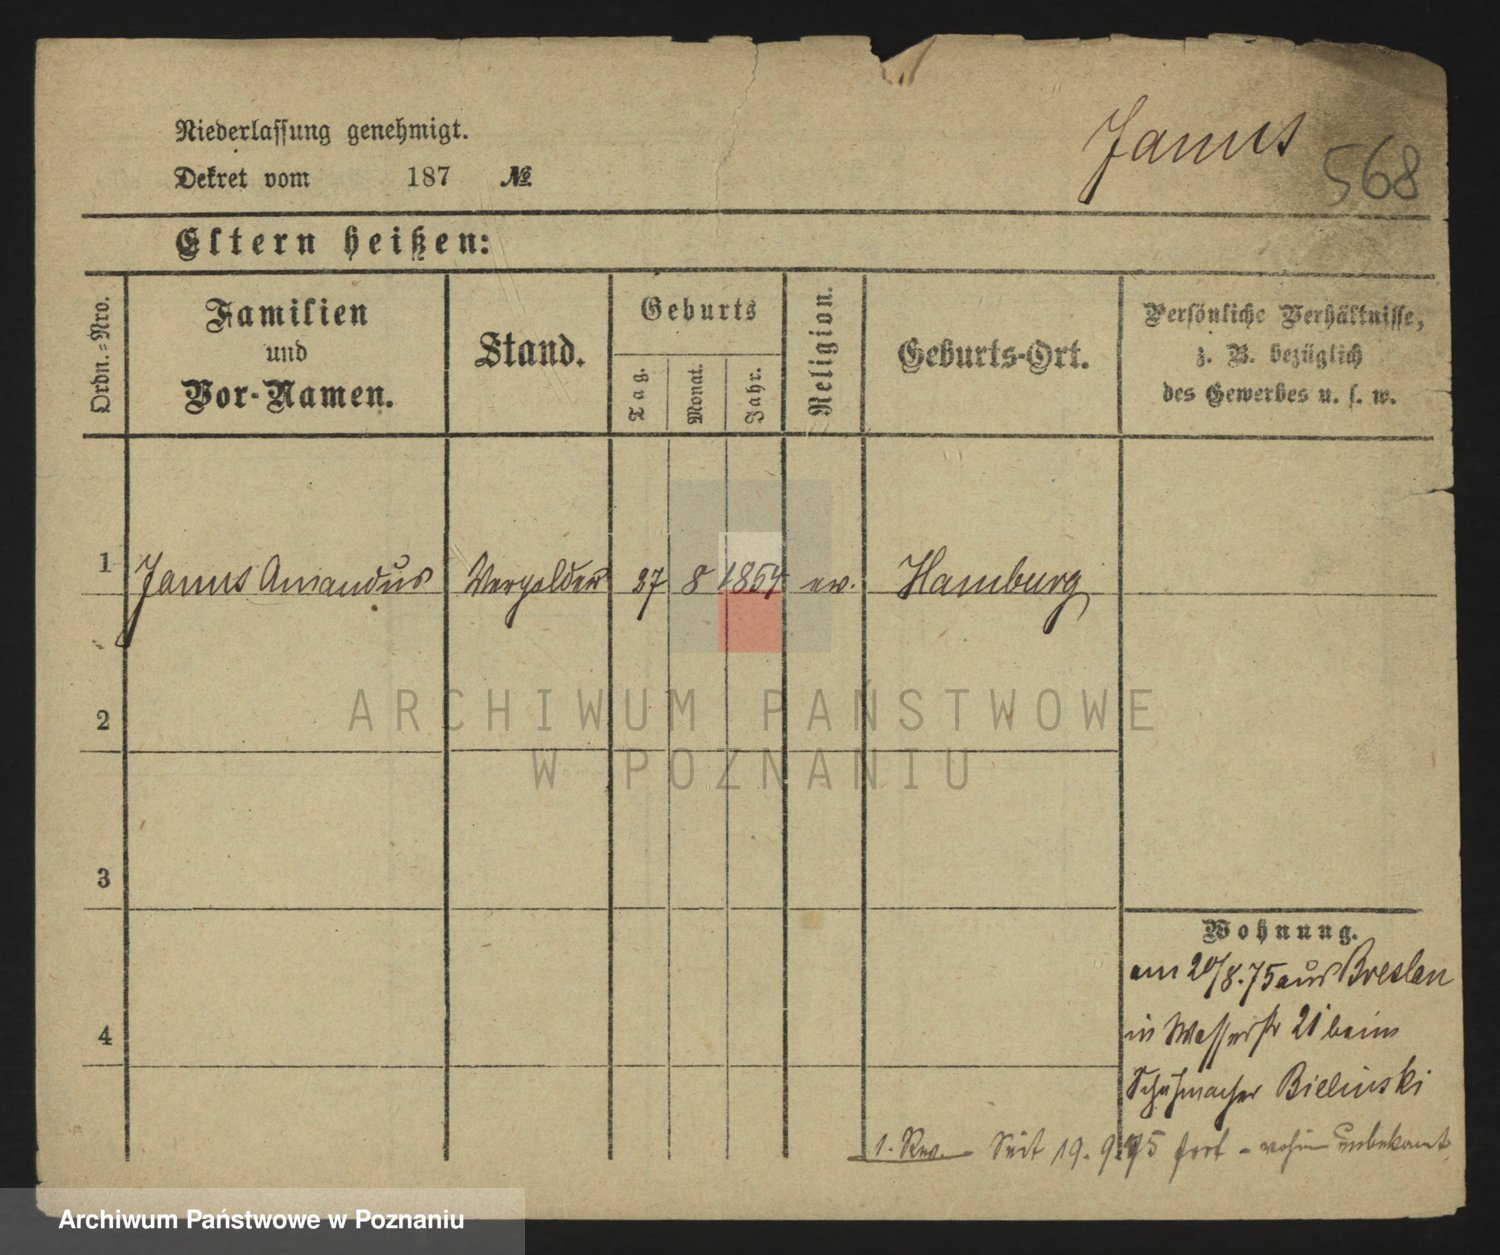 Niederlassung genehmigt.
Dekret vom 187 №
Janus
568
Eltern heißen:
Ordn.-Nro.
Familien
und
Vor-Namen.
Stand.
Geburts
Tag.
Monat.
Jahr.
Religion.
Geburts-Ort.
Persönliche Verhältnisse,
z. B. bezüglich
des Gewerbes u. s. w.
1 Janus Amandus Vergolder 27 8 1854 ev. Hamburg
2
3
4
Wohnung.
am 20/8.75 aus Breslau
in Wasserstr 21 beim
Schuhmacher Bielinski
1. Rev. Seit 19.9.75 fort - wohin unbekannt
ARCHIWUM PAŃSTWOWE
W POZNANIU
Archiwum Państwowe w Poznaniu